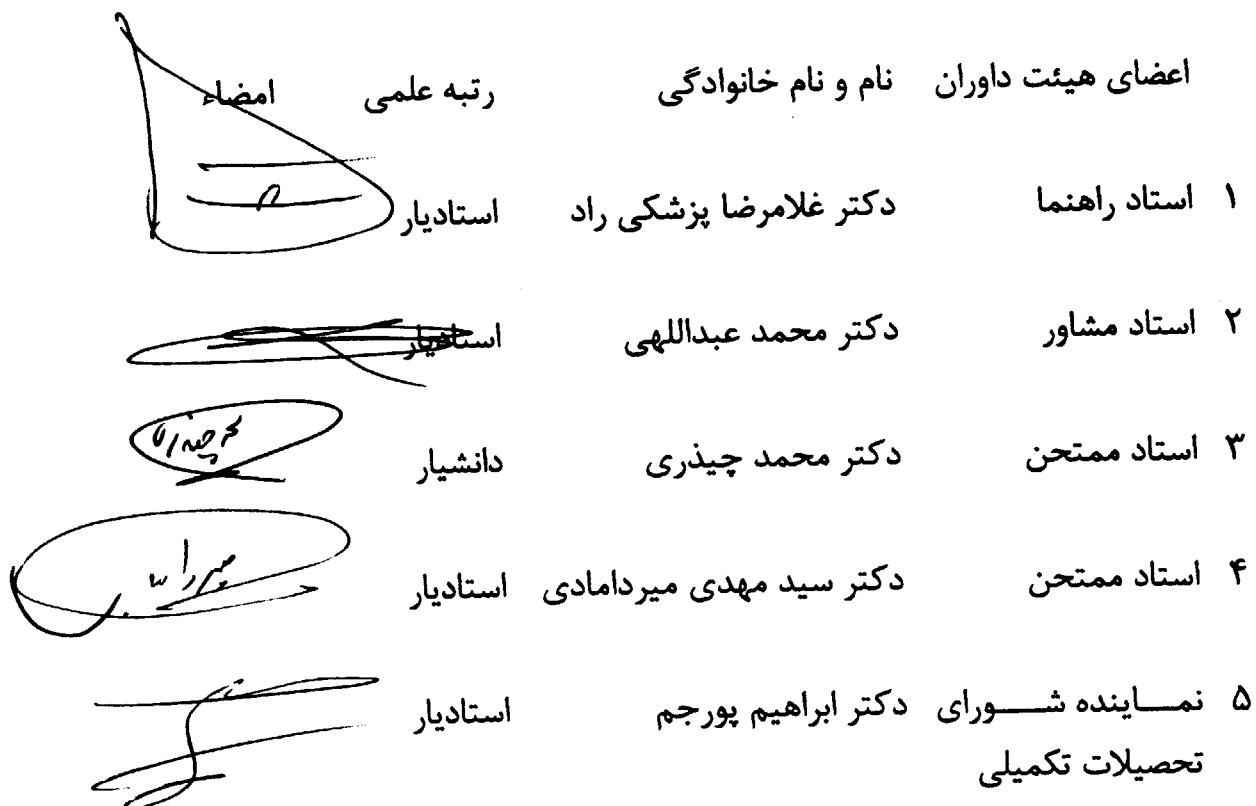 اعضای هیئت داوران نام و نام خانوادگی رتبه علمی امضاء
۱ استاد راهنما دکتر غلامرضا پزشکی راد استادیار
۲ استاد مشاور دکتر محمد عبداللهی استادیار
۳ استاد ممتحن دکتر محمد چیذری دانشیار
۴ استاد ممتحن دکتر سید مهدی میردامادی استادیار
۵ نمـــاینده شـــــورای دکتر ابراهیم پورجم استادیار
تحصیلات تکمیلی